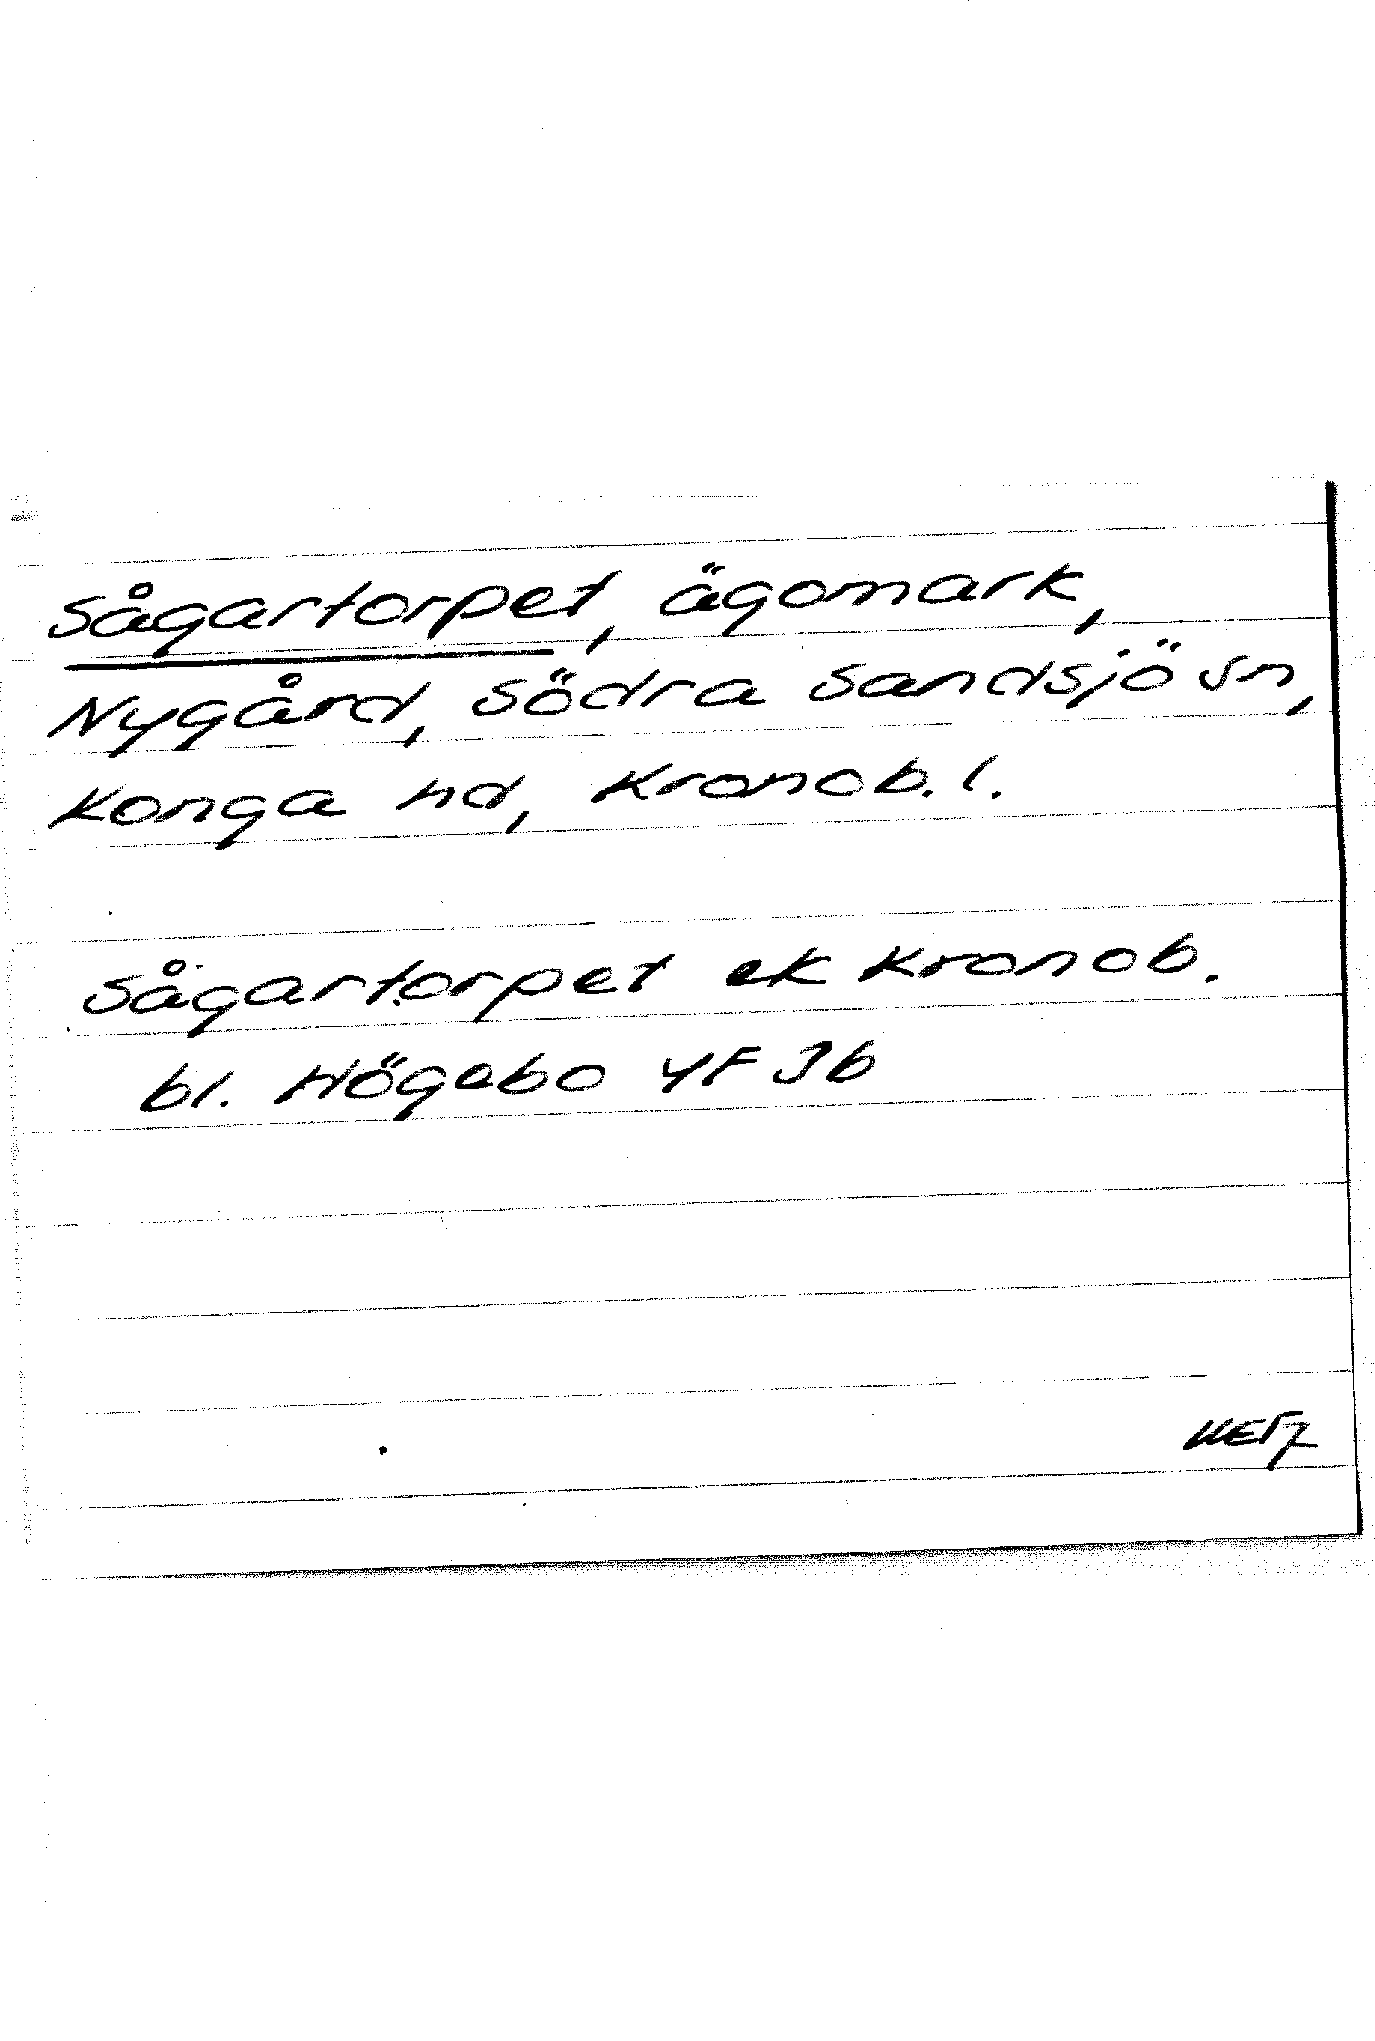 Sågartorpet, ägomark,
Nygård, Södra Sandsjö sn,
Konga hd, Kronob. l.
Sågartorpet ek Kronob.
bl. Högebo 4F 3b